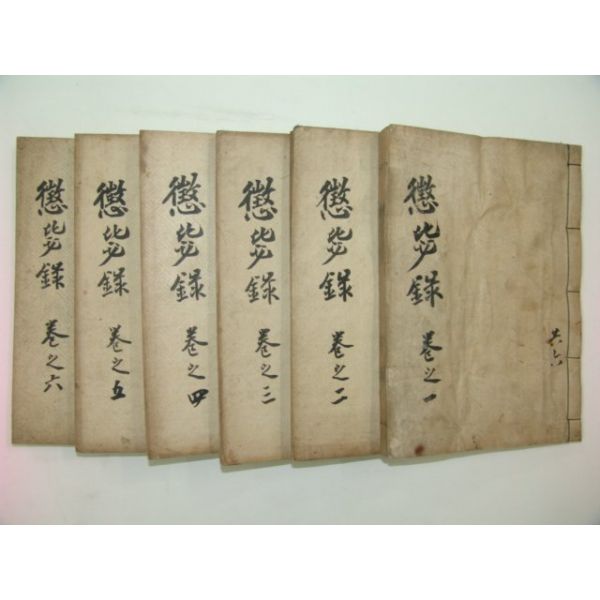 懲毖錄 卷之一
共六
懲毖錄 卷之二
懲毖錄 卷之三
懲毖錄 卷之四
懲毖錄 卷之五
懲毖錄 卷之六